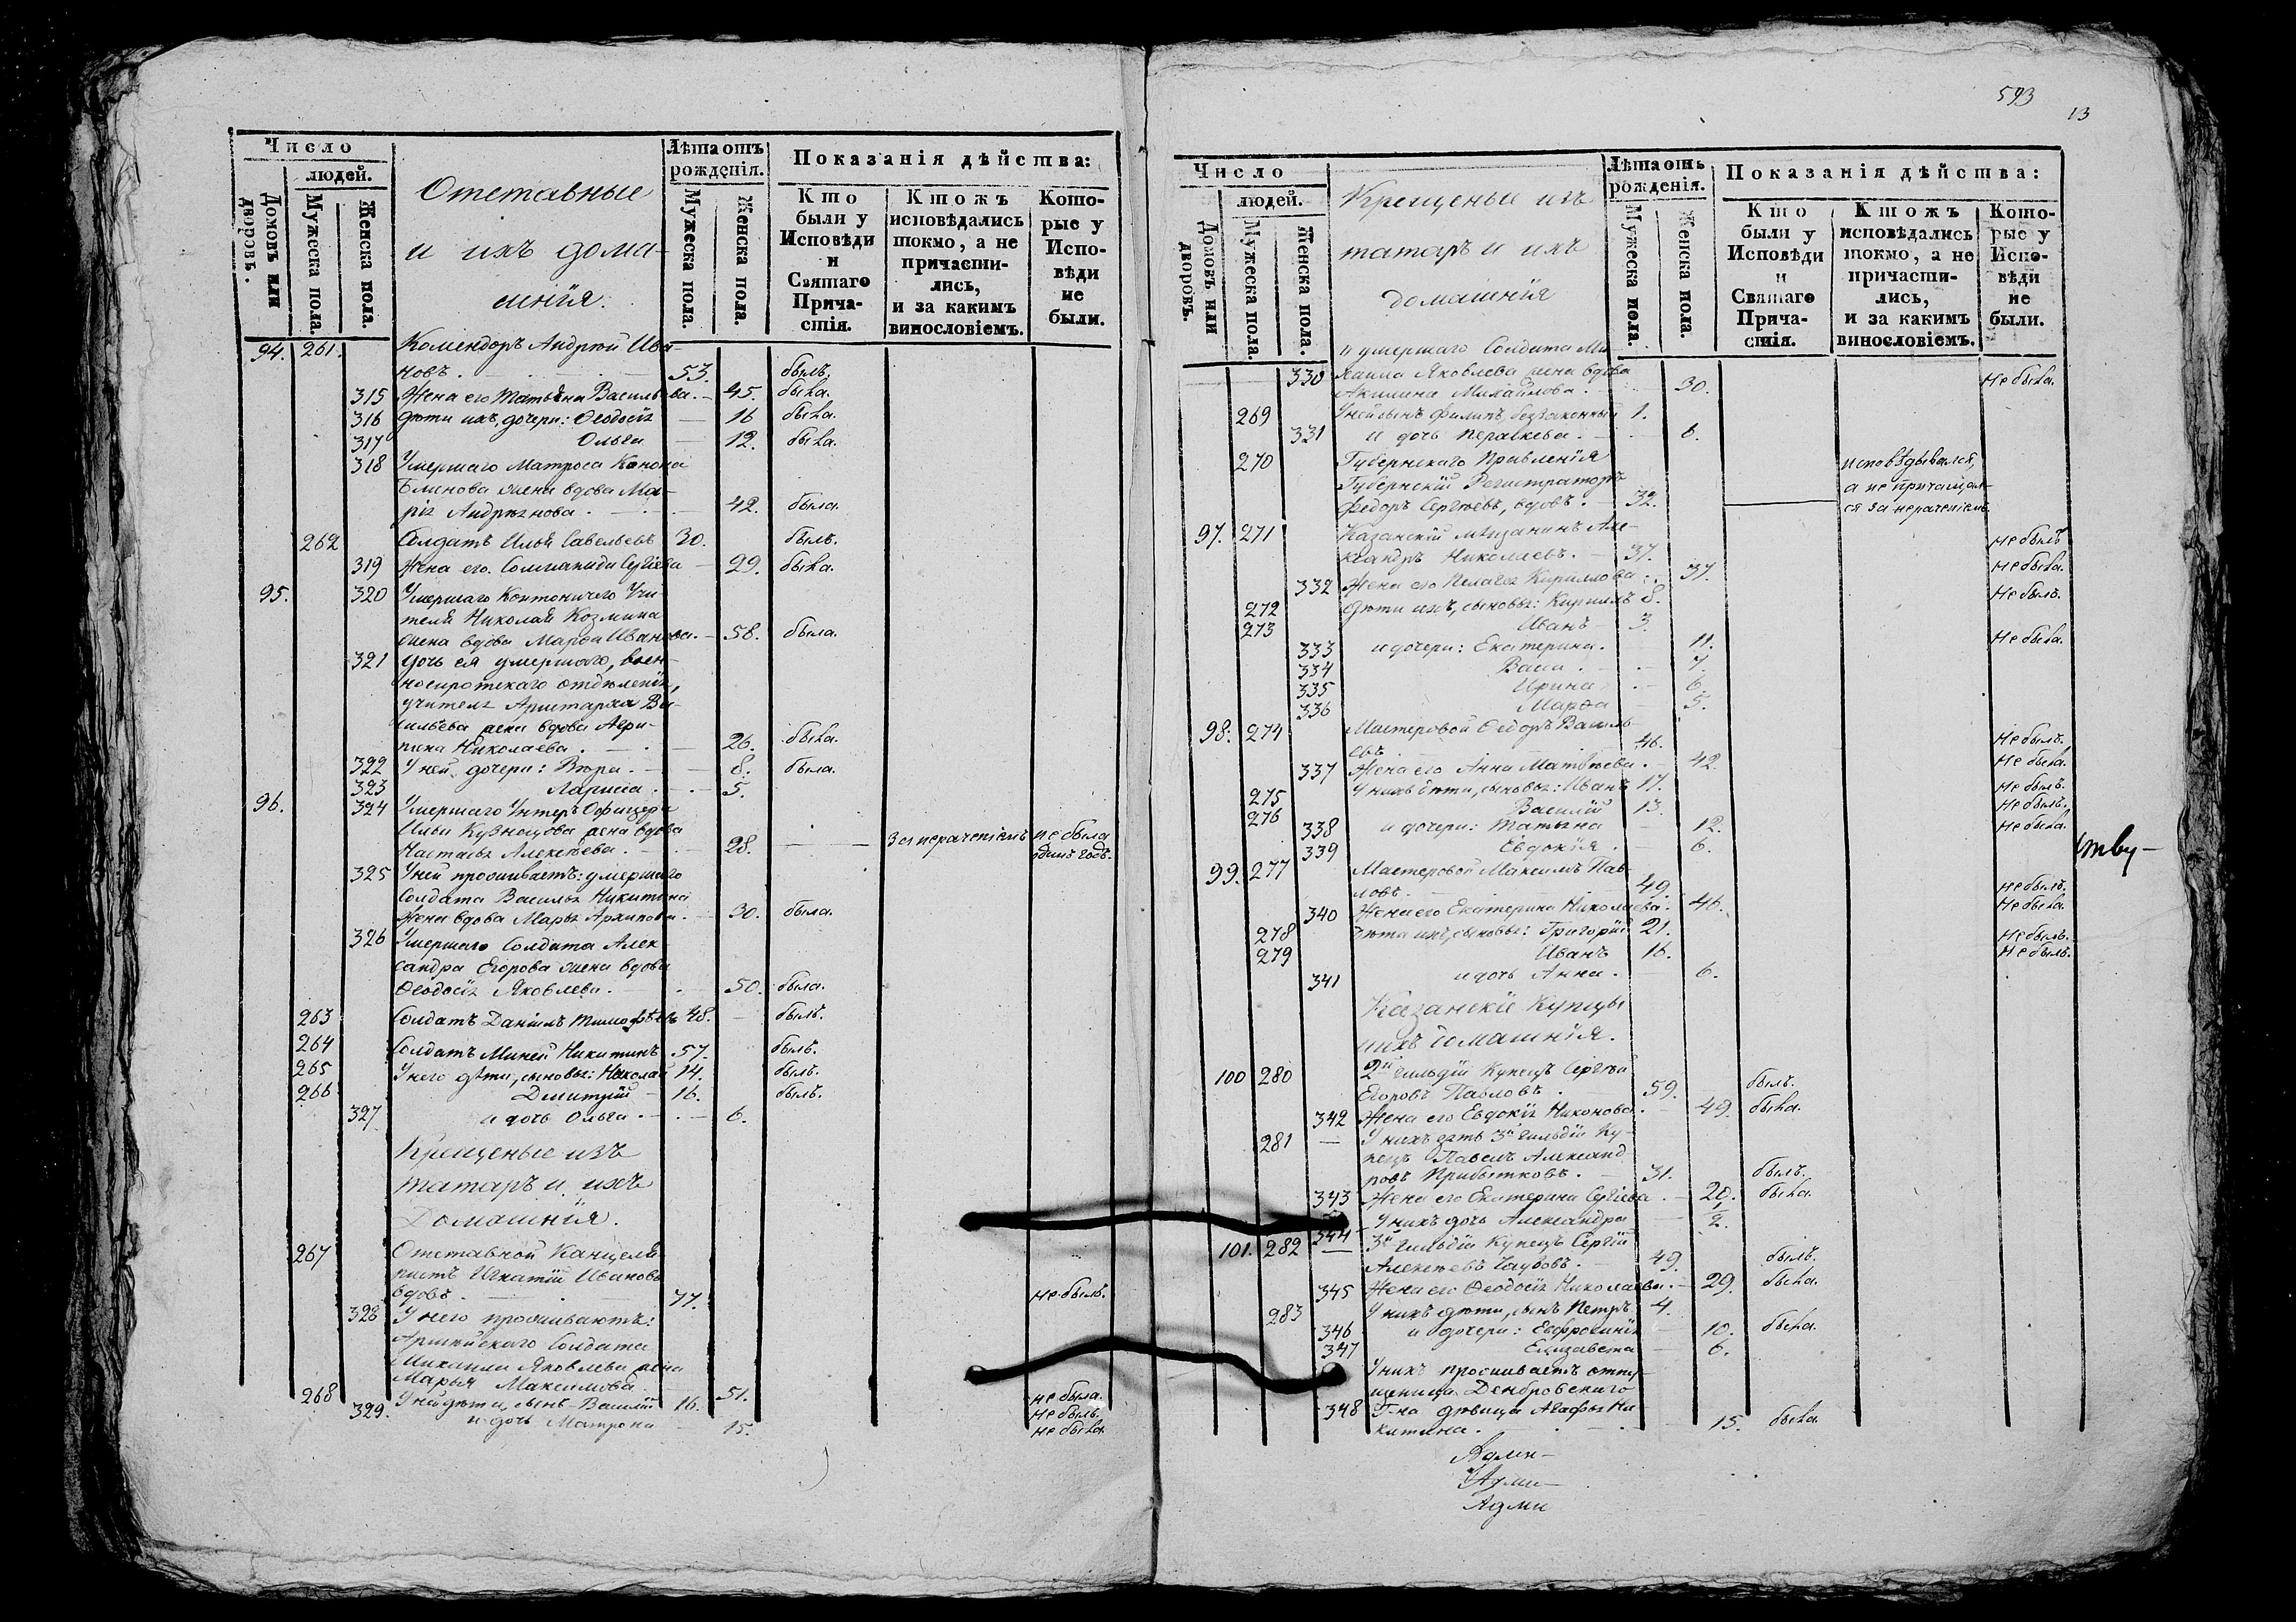 Число
людей.
Домовъ или дворовъ.
Мужеска пола.
Женска пола.
Отставные
и ихъ дома-
шнія.
Лѣта отъ рожденія.
Мужеска пола.
Женска пола.
Показанія дѣйства:
Кто были у Исповѣди и Святаго Прича-стія.
Ктожъ исповѣдались токмо, а не причасти-лись, и за какимъ винословіемъ.
Кото-рые у Испо-вѣди не были.
94. 261. Комендоръ Андрей Ива-
новъ. 53. былъ.
315 Жена его Татьяна Васильева. 45. была.
316 Дѣти ихъ, дочери: Ѳеодосія 16 была.
317 Ольга 12. была.
318 Умершаго Матроса Конона
Блинова жена вдова Ма-
рія Андреянова. 42. была.
262 Солдатъ Илья Савельевъ 30. былъ.
319 Жена его Соломанида Сергіева 29. была.
95. 320 Умершаго Контоничего Учи-
теля Николая Козмина
жена вдова Марѳа Иванова. 58. была.
321 Дочь ея умершаго, воен-
но сиротскаго отдѣленія,
учителя Аристарха Ва-
сильева жена вдова Агри-
пина Николаева. 26. была.
322 У ней дочери: Вѣра. 8. была.
323 Лариса. 5.
96. 324 Умершаго Унтеръ Офицера
Ильи Кузнецова жена вдова
Настасья Алексѣева. 28. За нераченіемъ не была
одинъ годъ.
325 У ней проживаетъ: умершаго
Солдата Василья Никитина
жена вдова Марья Архипова. 30. была.
326 Умершаго Солдата Алек-
сандра Егорова жена вдова
Ѳеодосія Яковлева. 50. была.
263 Солдатъ Даніилъ Тимофѣевъ 48. былъ.
264 Солдатъ Миней Никитинъ 57. былъ.
265 У него дѣти, сыновья: Николай 14. былъ.
266 Димитрій 16. былъ.
327 и дочь Ольга. 6.
Крещеные изъ
татаръ и ихъ
Домашнія.
267 Отставной Канцеля-
ристъ Игнатій Ивановъ
вдовъ. 77. Не былъ.
328 У него проживаютъ:
Армейскаго Солдата
Михаила Яковлева жена
Марья Максимова 51. не была.
268 У ней дѣти, сынъ Василій 16. Не былъ.
329. и дочь Матрона 15. не была.
593
13
Число
людей.
Домовъ или дворовъ.
Мужеска пола.
Женска пола.
Крещеные изъ
татаръ и ихъ
домашнія
Лѣта отъ рожденія.
Мужеска пола.
Женска пола.
Показанія дѣйства:
Кто были у Исповѣди и Святаго Прича-стія.
Ктожъ исповѣдались токмо, а не причасти-лись, и за какимъ винословіемъ.
Кото-рые у Испо-вѣди не были.
и умершаго Солдата Ми-
330 хаила Яковлева жена вдова
Акилина Михайлова. 30. Не была.
269 У ней сынъ Филипъ беззаконный 1.
331 и дочь Перасковья. 6.
270 Губернскаго Правленія
Губернскій Регистраторъ
Федоръ Сергѣевъ, вдовъ. 32. исповѣдывался,
а не причащал-
ся за нераченіемъ
97. 271 Казанскій мѣщанинъ Але-
ксандръ Николаевъ. 37. Не былъ
332 Жена его Пелагея Кирилова. 37. Не была.
272 Дѣти ихъ, сыновья: Кирилъ 8. Не былъ.
273 Иванъ 3.
333 и дочери: Екатерина. 11. Не была.
334 Васа. 7.
335 Ирина 6.
336 Марѳа 5.
98. 274 Мастеровой Ѳедоръ Василь-
евъ 46. Не былъ.
337 Жена его Анна Матвѣева. 42. Не была.
275 У нихъ дѣти, сыновья: Иванъ 17. Не былъ.
276 Василій 13. Не былъ.
338 и дочери: Татьяна 12. Не была.
339 Евдокія. 6.
ству-
99. 277 Мастеровой Максимъ Пав-
ловъ. 49. Не былъ.
340 Жена его Екатерина Николаева. 46. Не была.
278 Дѣти ихъ, сыновья: Григорій 21. Не былъ.
279 Иванъ 16. Не былъ.
341 и дочь Анна. 6.
Казанскіе Купцы
и ихъ домашнія.
100 280 2й гильдіи Купецъ Сергѣй
Егоровъ Павловъ. 59. былъ.
342 Жена его Евдокія Никонова. 49. была.
281 У нихъ зять 3й гильдіи Ку-
пецъ Павелъ Александ
ровъ Прибытковъ. 31. былъ.
343 Жена его Екатерина Сергіева. 20. была.
344 У нихъ дочь Александра 1/2.
101. 282 3й гильдіи Купецъ Сергій
Алексѣевъ 49. былъ.
345 Жена его Ѳеодосія Николаева. 29. была.
283 У нихъ дѣти, сынъ Петръ 4.
346 и дочери: Евфросинія 10. была.
347 Елизавета 6.
У нихъ проживаетъ отпу-
щеница Дембровскаго
348 Г-на дѣвица Агафья Ни
китина. 15. была.
Адми-
Адми-
Адми